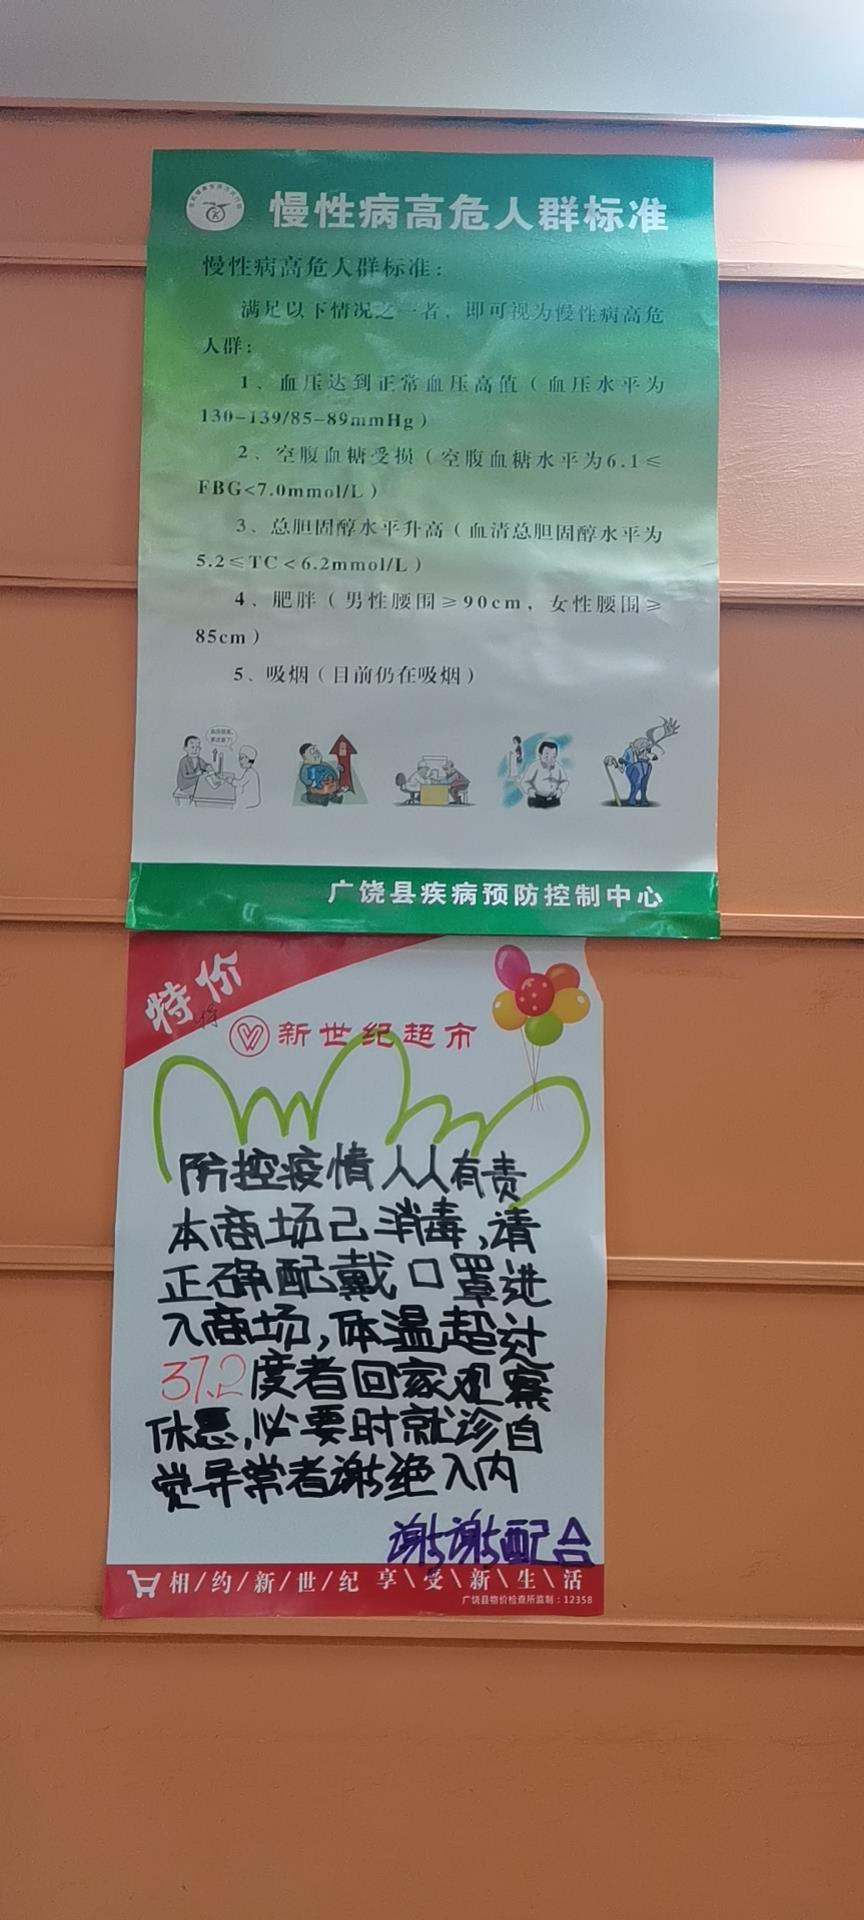 慢性病高危人群标准
慢性病高危人群标准：
满足以下情况之一者，即可视为慢性病高危
人群：
1、血压达到正常血压高值（血压水平为
130-139/85-89mmHg）
2、空腹血糖受损（空腹血糖水平为6.1≤
FBG<7.0mmol/L）
3、总胆固醇水平升高（血清总胆固醇水平为
5.2≤TC<6.2mmol/L）
4、肥胖（男性腰围≥90cm，女性腰围≥
85cm）
5、吸烟（目前仍在吸烟）
广饶县疾病预防控制中心
特价
特
新世纪超市
防控疫情人人有责
本商场已消毒,请
正确配戴口罩进
入商场,体温超过
37.2度者回家观察
休息,必要时就诊自
觉异常者谢绝入内
谢谢配合
相/约/新/世/纪 享\受\新\生\活
广饶县物价检查所监制：12358